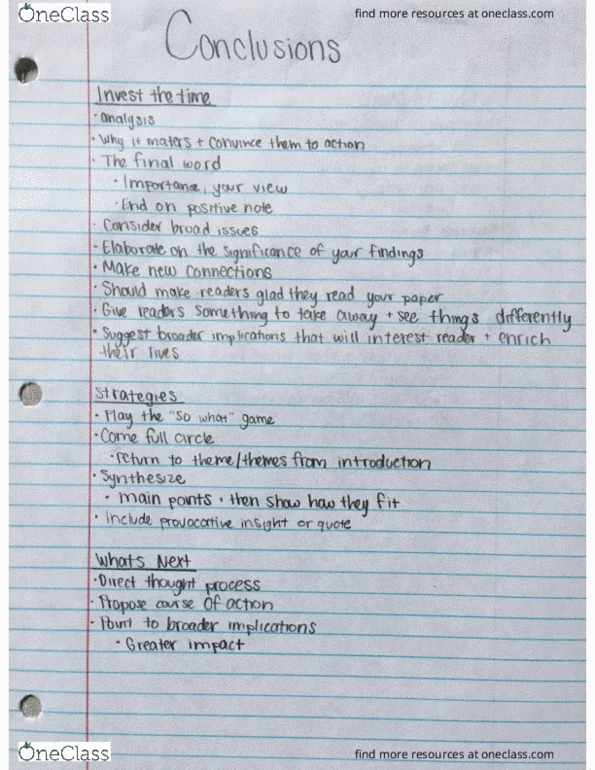 OneClass
find more resources at oneclass.com
Conclusions
Invest the time
· analysis
· Why it maters + convince them to action
· The final word
· Importance, your view
· End on positive note
· Consider broad issues
- Elaborate on the significance of your findings
· Make new connections
· Should make readers glad they read your paper
· Give readers something to take away + see things differently
· Suggest broader implications that will interest reader + enrich
their lives
Strategies
· Play the "So what" game
· Come full circle
· return to theme/themes from introduction
· Synthesize
· main points · then show how they fit
· Include provocative insight or quote
Whats Next
· Direct thought process
· Propose course of action
· Point to broader implications
· Greater impact
OneClass
find more resources at oneclass.com